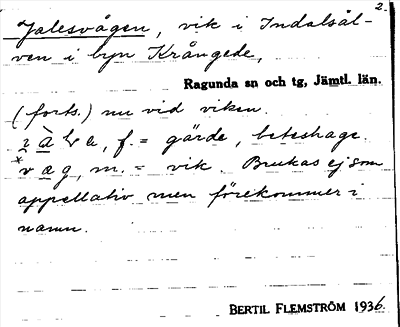 2.
Jalesvågen, vik i Indalsäl-
ven i byn Krångede,
Ragunda sn och tg, Jämtl. län.
(forts.) nu vid viken.
f. = gärde, beteshage.
*væg, m. = vik. Brukas ej som
appellativ men förekommer i
namn.
BERTIL FLEMSTRÖM 1936.